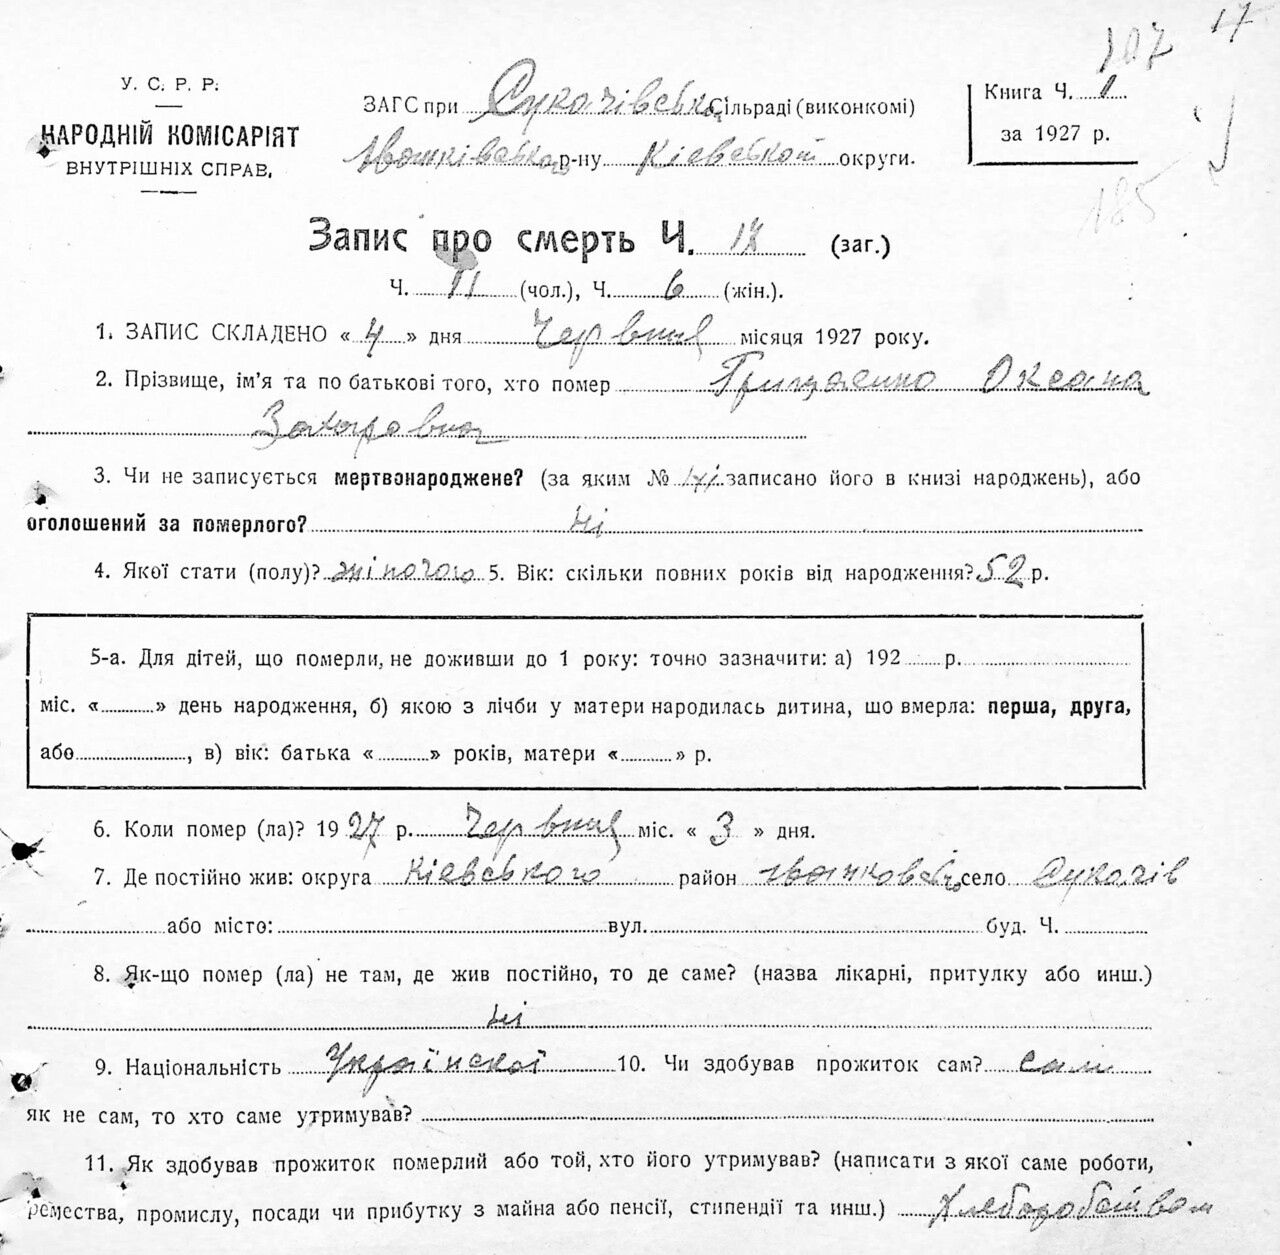 107 17
У. С. Р. Р.
НАРОДНІЙ КОМІСАРІЯТ
ВНУТРІШНІХ СПРАВ.
ЗАГС при Сукачівській Сільраді (виконкомі)
р-ну Кієвської округи.
Книга Ч. 1
за 1927 р.
185
Запис про смерть Ч. 17 (заг.)
Ч. 11 (чол.), Ч. 6 (жін.).
1. ЗАПИС СКЛАДЕНО « 4 » дня Червния місяця 1927 року.
2. Прізвище, ім'я та по батькові того, хто помер Грищенко Оксана
Захаровна
3. Чи не записується мертвонароджене? (за яким № записано його в книзі народжень), або
оголошений за померлого? ні
4. Якої стати (полу)? жіночого 5. Вік: скільки повних років від народження? 52 р.
5-а. Для дітей, що померли, не доживши до 1 року: точно зазначити: а) 192 р.
міс. « » день народження, б) якою з лічби у матери народилась дитина, що вмерла: перша, друга,
або , в) вік: батька « » років, матери « » р.
6. Коли помер (ла)? 1927 р. Червния міс. « 3 » дня.
7. Де постійно жив: округа Кієвського район село Сукачів
або місто: вул. буд. Ч.
8. Як-що помер (ла) не там, де жив постійно, то де саме? (назва лікарні, притулку або инш.)
ні
9. Національність Українскої 10. Чи здобував прожиток сам? сам
як не сам, то хто саме утримував?
11. Як здобував прожиток померлий або той, хто його утримував? (написати з якої саме роботи,
ремества, промислу, посади чи прибутку з майна або пенсії, стипендії та инш.) Хлеборобством